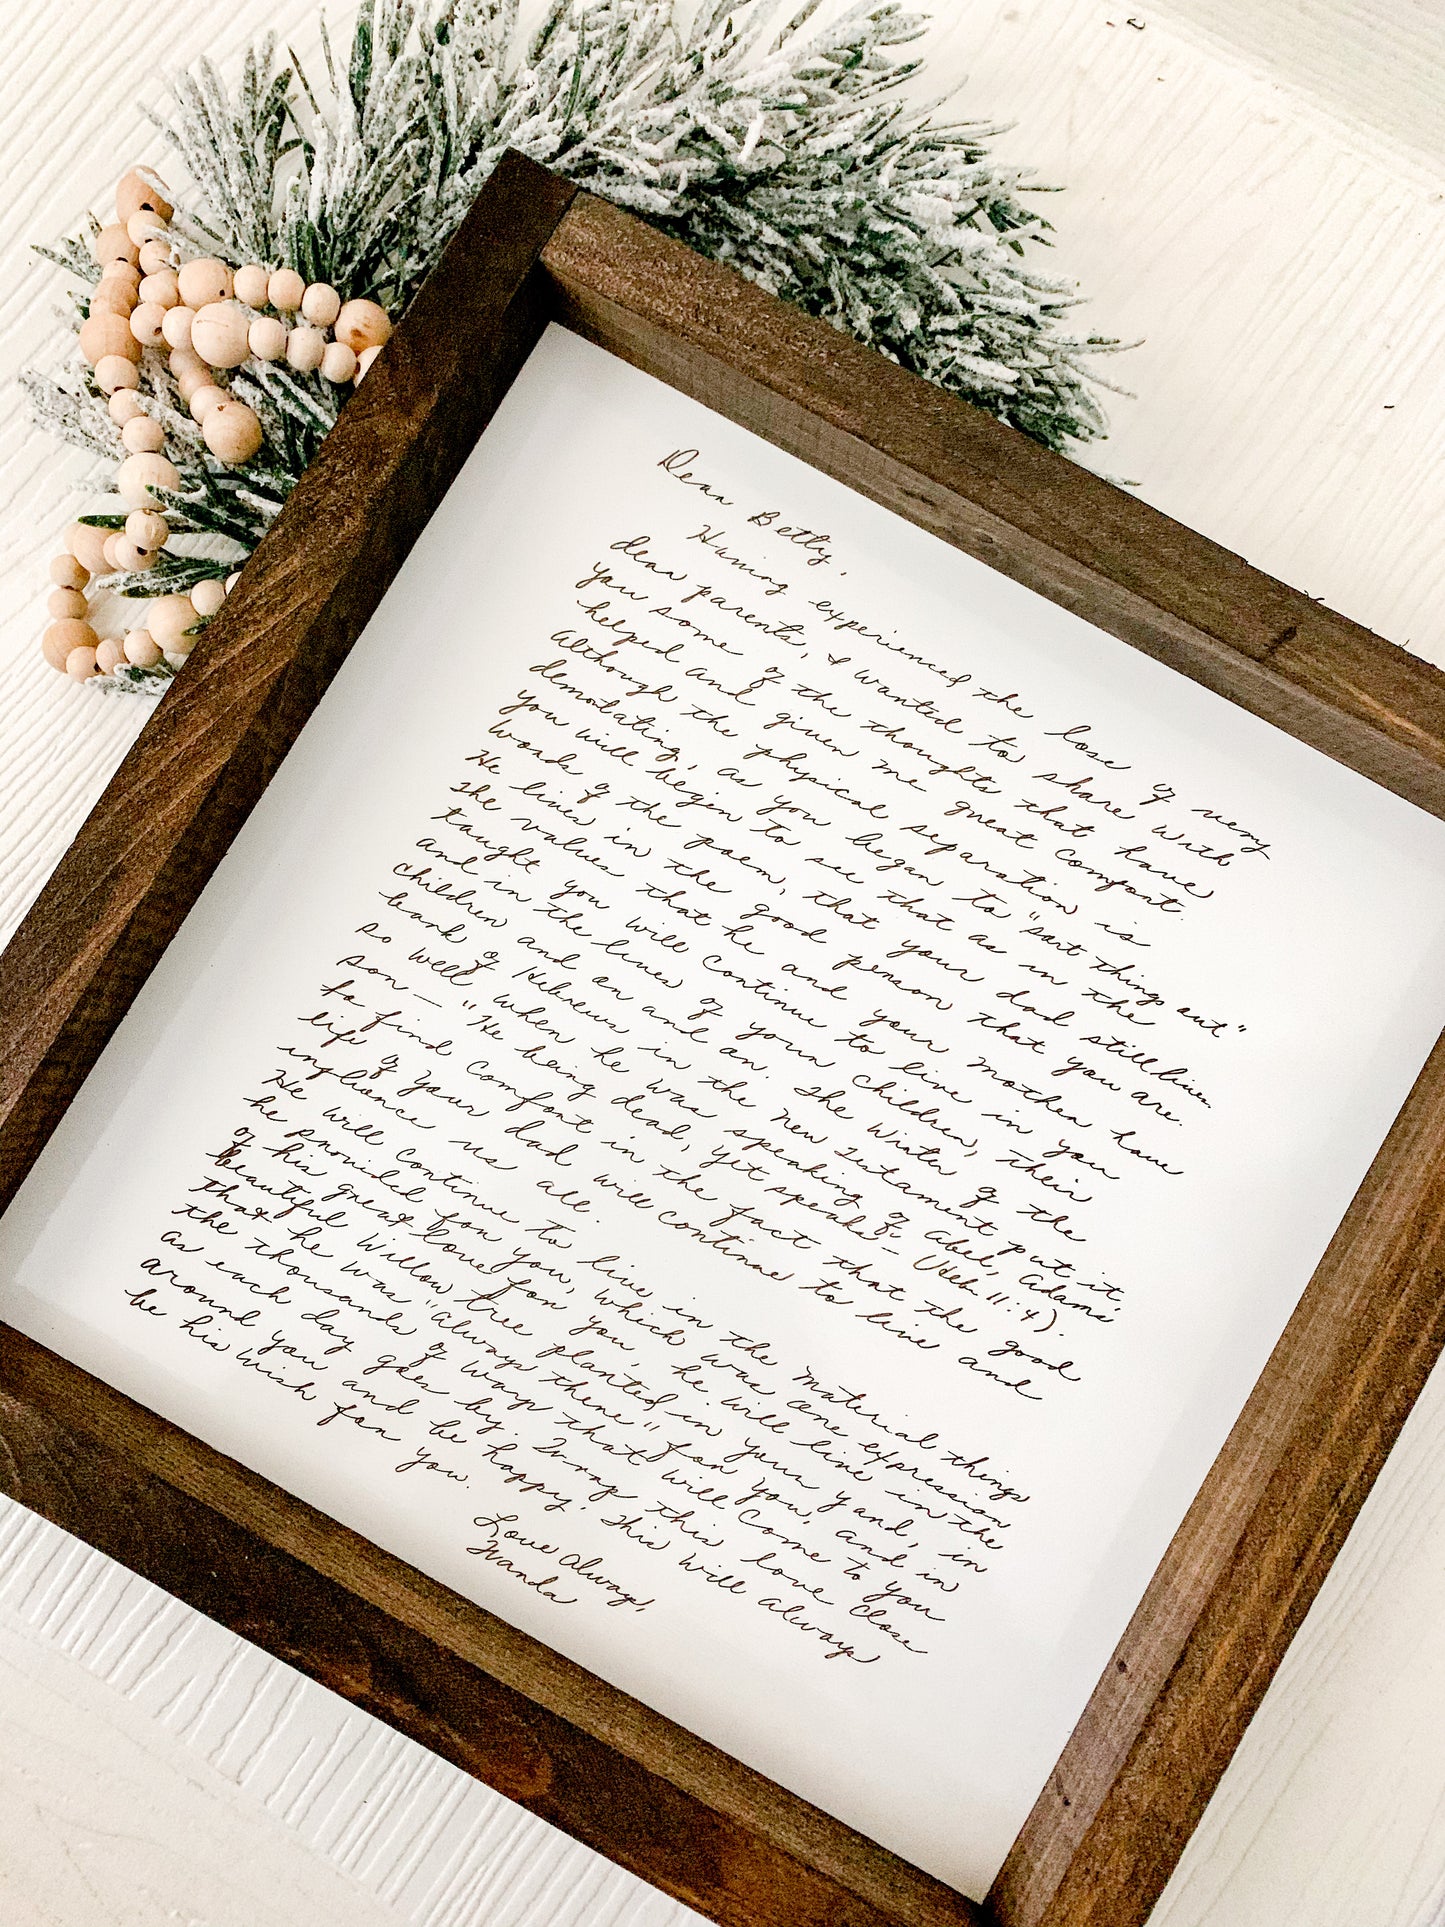 Dear Betty,
Having experienced the loss of very
dear parents, I wanted to share with
you some of the thoughts that have
helped and given me great comfort.
Although the physical separation is
devastating, as you began to "sort things out"
you will begin to see that as in the
words of the poem, that your dad still lives.
He lives in the good person that you are.
The values that he and your mother have
taught you will continue to live in you
and in the lives of your children, their
children and on and on. The writer of the
book of Hebrews in the New Testament put it
so well when he was speaking of Abel, Adam's
son — "He being dead, yet speaks" - (Heb. 11:4).
to find comfort in the fact that the good
life of your dad will continue to live and
influence us all.
He will continue to live in the material things
he provided for you, which was one expression
of his great love for you, he will live in the
beautiful willow tree planted in your yard, in
that he was "always there" for you, and in
the thousands of ways that will come to you
as each day goes by. Wrap this love close
around you and be happy. This will always
be his wish for you.
Love always,
Wanda